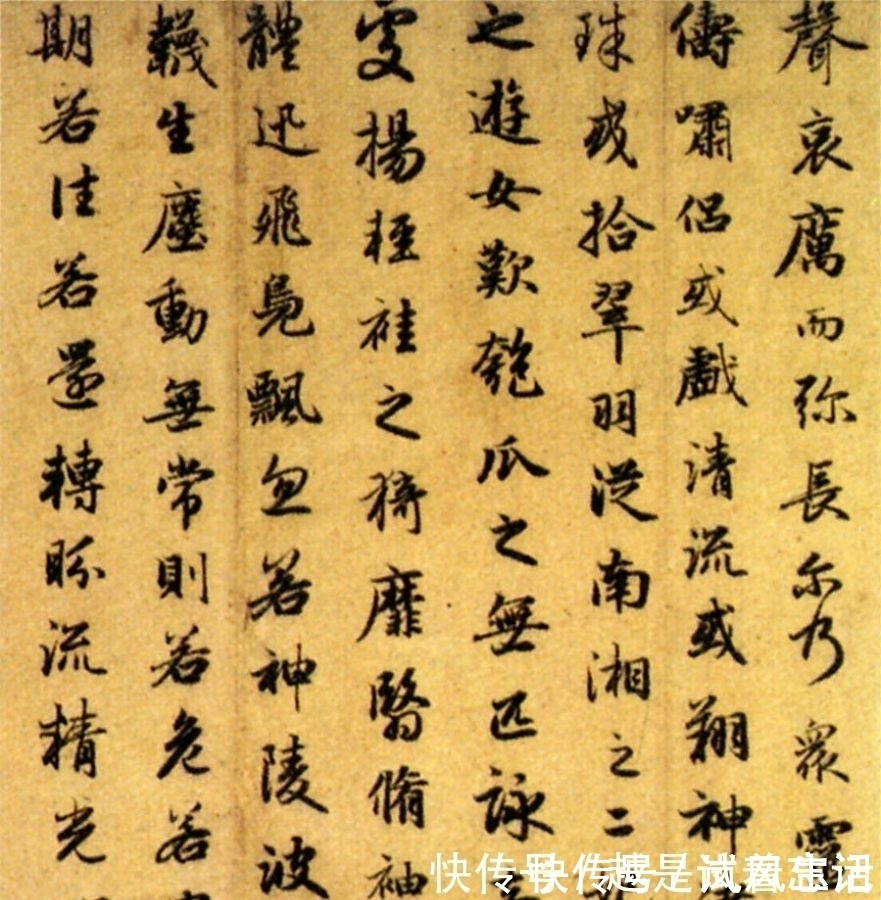 聲哀厲而弥長尓乃衆靈
儔嘯侣或戲清流或翔神
珠或拾翠羽從南湘之二
之遊女歎匏瓜之無匹詠
處揚輕袿之猗靡翳脩袖
體迅飛鳧飄忽若神陵波
韈生塵動無常則若危若
期若往若還轉眄流精光